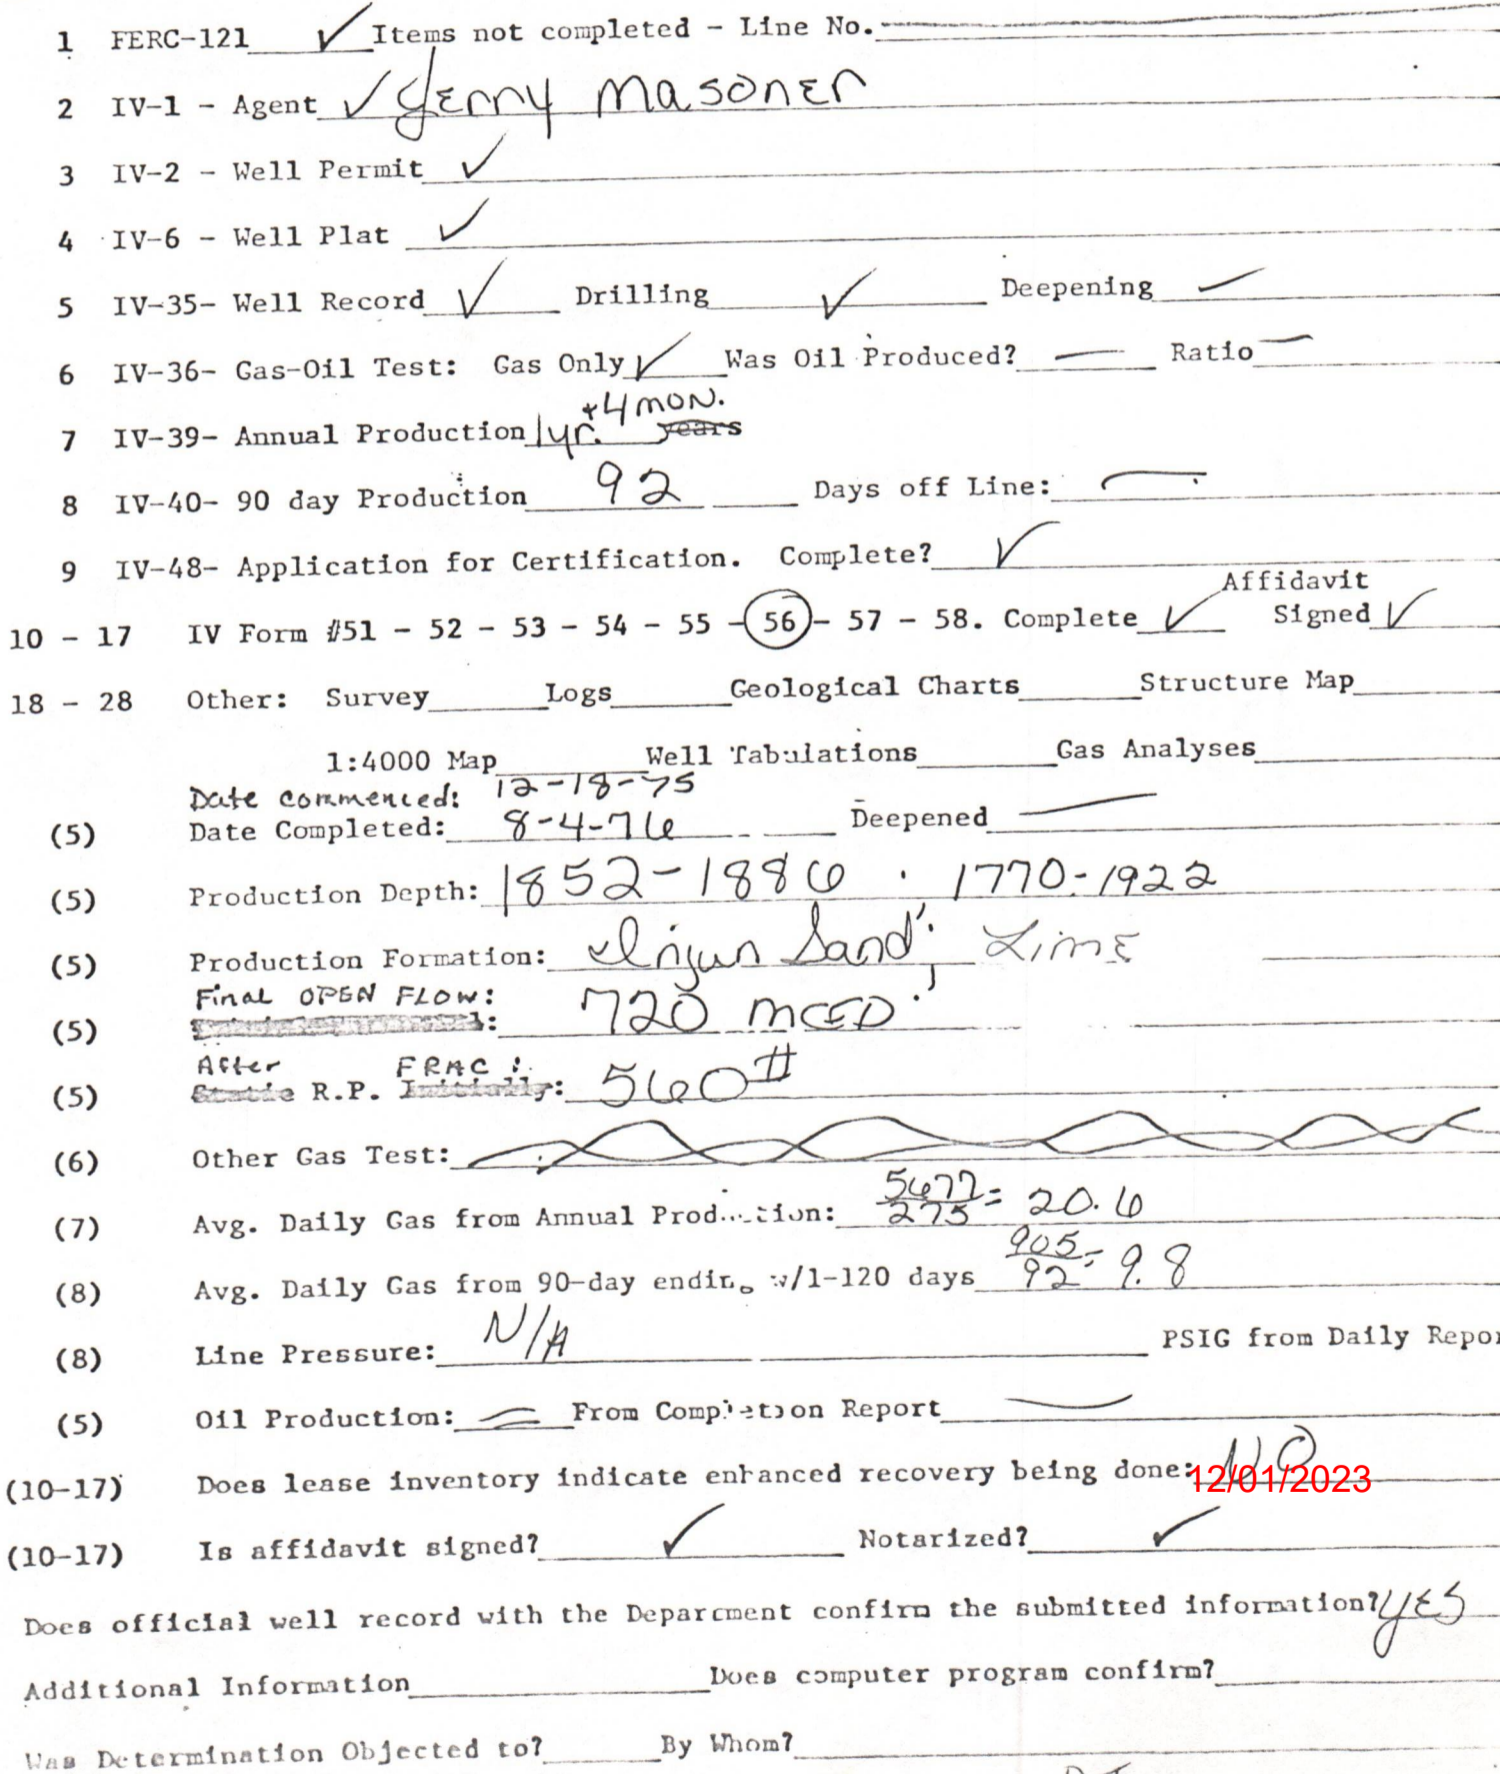 1 FERC-121 ✓ Items not completed - Line No.
2 IV-1 - Agent ✓ Jerry Masoner
3 IV-2 - Well Permit ✓
4 IV-6 - Well Plat ✓
5 IV-35- Well Record ✓ Drilling ✓ Deepening —
6 IV-36- Gas-Oil Test: Gas Only ✓ Was Oil Produced? — Ratio —
+4 mon.
7 IV-39- Annual Production 1yr. years
8 IV-40- 90 day Production 92 Days off Line: —
9 IV-48- Application for Certification. Complete? ✓
Affidavit
10 - 17 IV Form #51 - 52 - 53 - 54 - 55 - 56 - 57 - 58. Complete ✓ Signed ✓
18 - 28 Other: Survey Logs Geological Charts Structure Map
1:4000 Map Well Tabulations Gas Analyses
Date commenced: 12-18-75
(5) Date Completed: 8-4-76 Deepened —
(5) Production Depth: 1852-1886 . 1770-1922
(5) Production Formation: Injun Sand; Lime
Final OPEN FLOW:
(5) 720 MCFD
After FRAC :
(5) Static R.P. Initially: 560#
(6) Other Gas Test:
(7) Avg. Daily Gas from Annual Production: 5677/275 = 20.6
(8) Avg. Daily Gas from 90-day ending w/1-120 days 905/92 = 9.8
(8) Line Pressure: N/A PSIG from Daily Repor
(5) Oil Production: — From Completion Report —
(10-17) Does lease inventory indicate enhanced recovery being done: NO
12/01/2023
(10-17) Is affidavit signed? ✓ Notarized? ✓
Does official well record with the Department confirm the submitted information? YES
Additional Information Does computer program confirm?
Was Determination Objected to? By Whom?